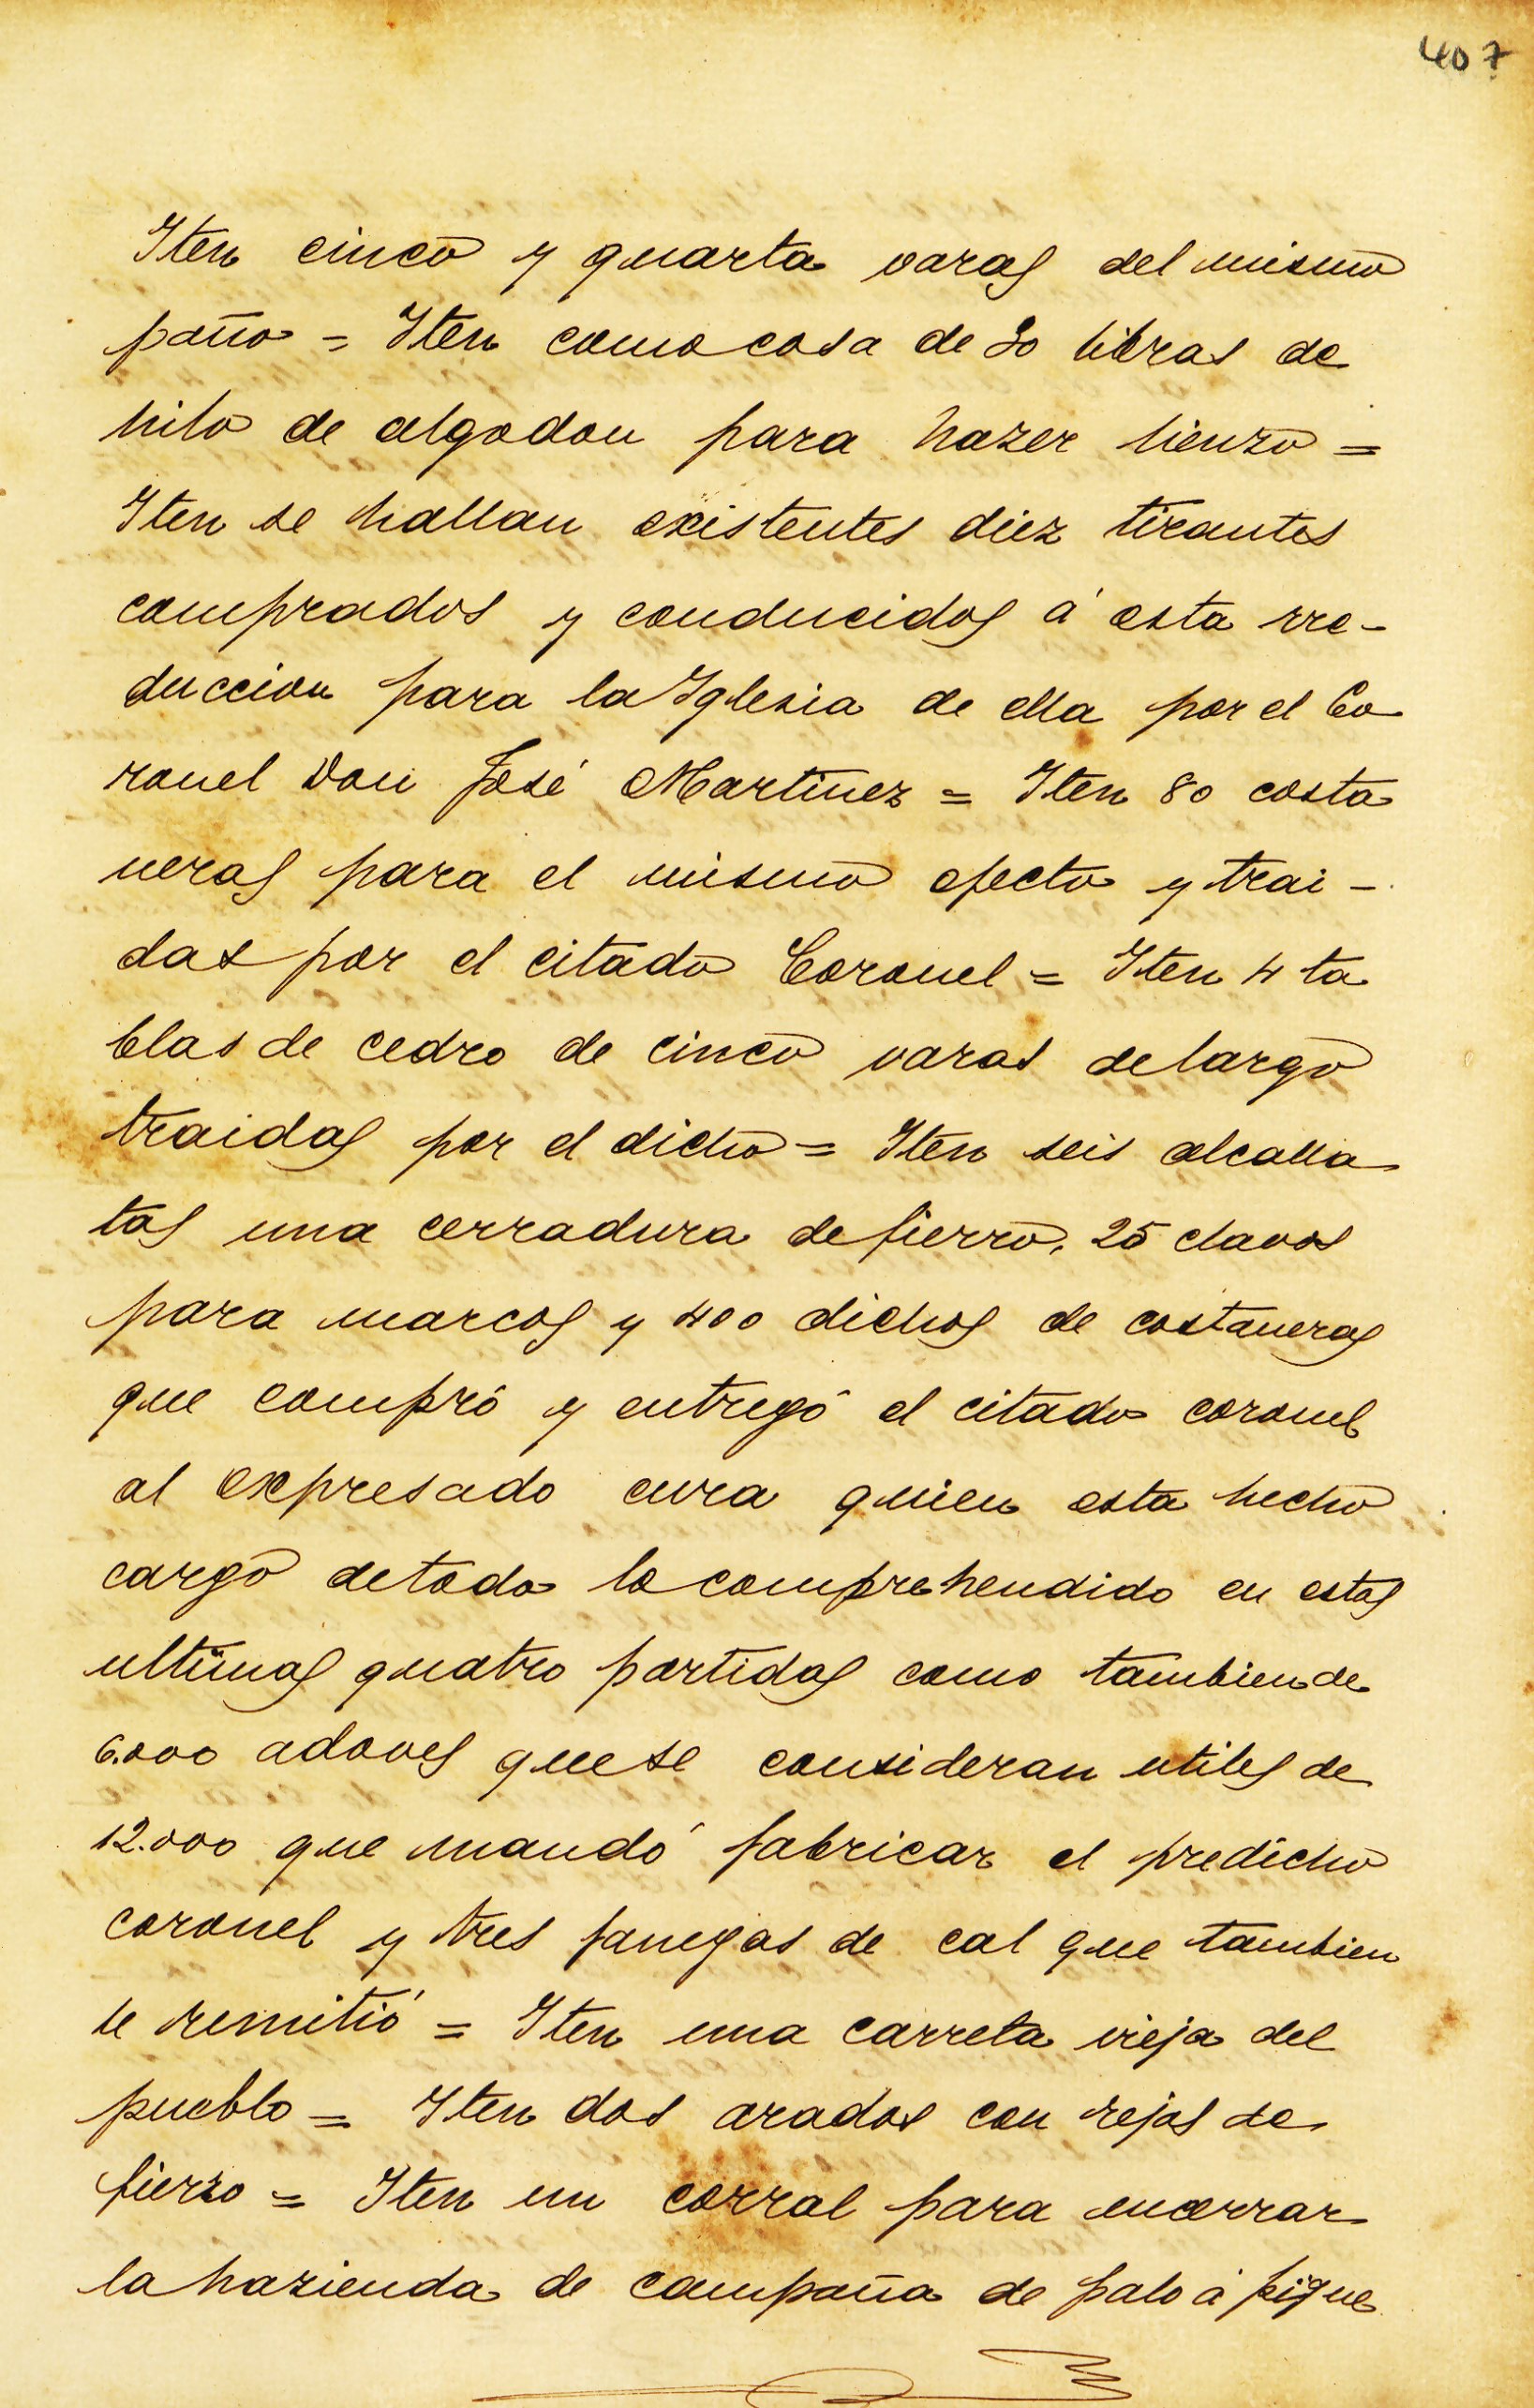 407
Iten cinco y quarta varas del mismo
paño = Iten como cosa de 30 libras de
hilo de algodon para hazer lienzo =
Iten se hallan existentes diez tirantes
comprados y conducidos á esta rre-
duccion para la Iglesia de ella por el Co
ronel Don José Martinez = Iten 80 costa
neras para el mismo efecto y trai-
das por el citado Coronel = Iten 4 ta
blas de cedro de cinco varas de largo
traidas por el dicho = Iten seis alcalla
tas una cerradura de fierro, 25 clavos
para marcos y 400 dichos de costaneras
que compró y entregó el citado coronel
al expresado cura quien esta hecho
cargo de todo lo comprehendido en estas
ultimas quatro partidas como tambien de
6.000 adoves que se consideran utiles de
12.000 que mandó fabricar el predicho
coronel y tres fanegas de cal que tambien
le remitió = Iten una carreta vieja del
pueblo = Iten dos arados con rejas de
fierro = Iten un corral para encerrar
la hazienda de campaña de palo á pique